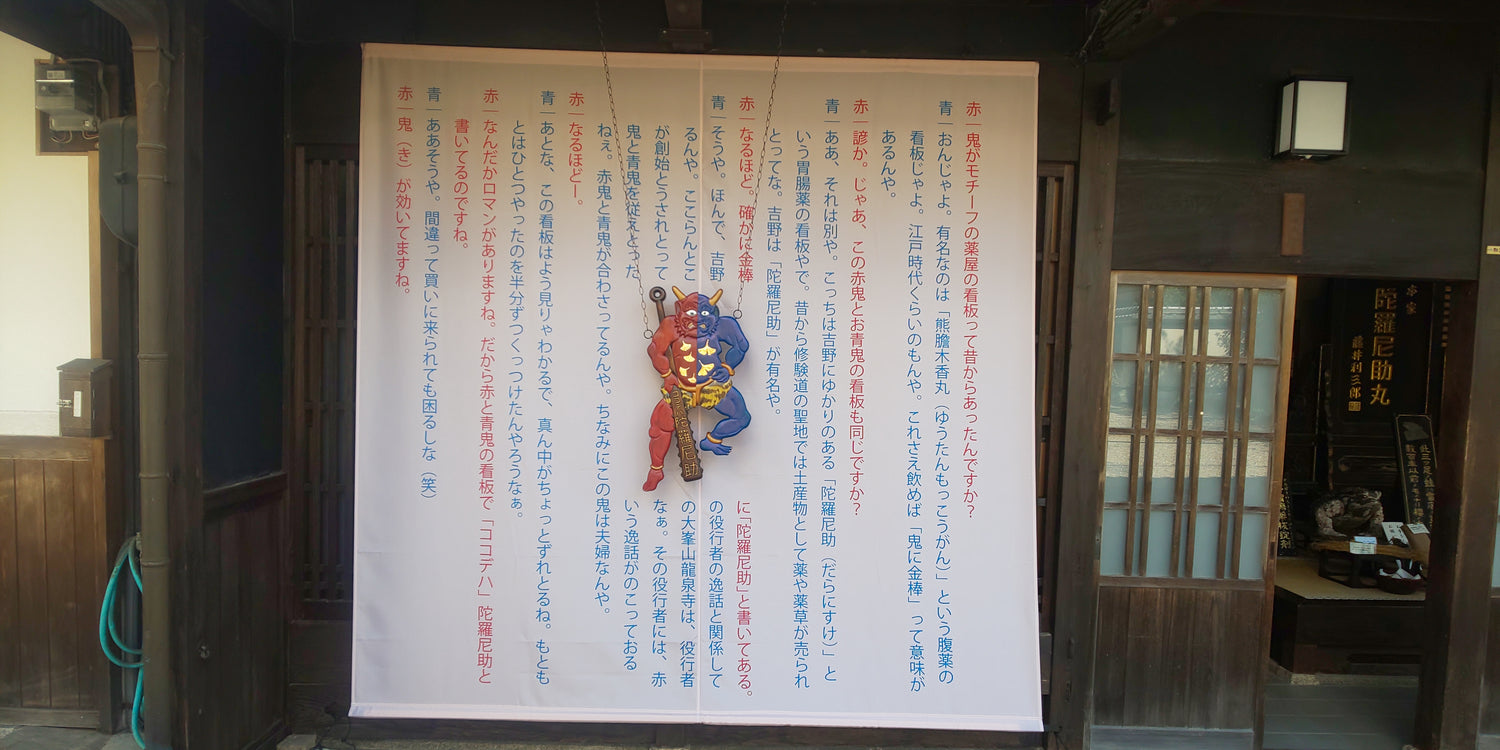 赤｜鬼がモチーフの薬屋の看板って昔からあったんですか？
青｜おんじゃよ。有名なのは「熊膽木香丸（ゆうたんもっこうがん）」という腹薬の
看板じゃよ。江戸時代くらいのもんや。これさえ飲めば「鬼に金棒」って意味が
あるんや。
赤｜諺か。じゃあ、この赤鬼とお青鬼の看板も同じですか？
青｜ああ、それは別や。こっちは吉野にゆかりのある「陀羅尼助（だらにすけ）」と
いう胃腸薬の看板やで。昔から修験道の聖地では土産物として薬や薬草が売られ
とってな。吉野は「陀羅尼助」が有名や。
赤｜なるほど。確かに金棒に「陀羅尼助」と書いてある。
青｜そうや。ほんで、吉野の役行者の逸話と関係して
るんや。ここらんとこの大峯山龍泉寺は、役行者
が創始とうされとってなぁ。その役行者には、赤
鬼と青鬼を従えとったいう逸話がのこっておる
ねぇ。赤鬼と青鬼が合わさってるんや。ちなみにこの鬼は夫婦なんや。
赤｜なるほどー。
青｜あとな、この看板はよう見りゃわかるで、真ん中がちょっとずれとるね。もとも
とはひとつやったのを半分ずつくっつけたんやろうなぁ。
赤｜なんだかロマンがありますね。だから赤と青鬼の看板で「ココデハ」陀羅尼助と
書いてるのですね。
青｜ああそうや。間違って買いに来られても困るしな（笑）
赤｜鬼（き）が効いてますね。
陀羅尼助
陀羅尼助丸
藤井利三郎